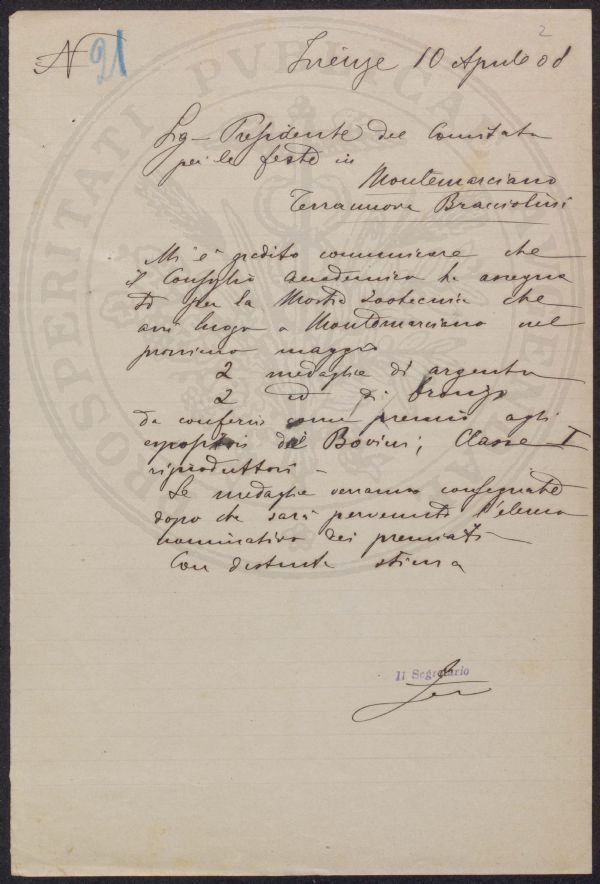 2
N 91
Firenze 10 Aprile 08
Sig. Presidente del Comitato
per le feste in
Montemarciano
Terranuova Bracciolini
Mi è gradito comunicare che
il Consiglio Accademico ha assegna
to per la Mostra Zootecnica che
avrà luogo a Montemarciano nel
prossimo maggio
2 medaglie di argento
2 id di bronzo
da conferirsi come premio agli
espositori dei Bovini; Classe I
riproduttori -
Le medaglie verranno consegnate
dopo che sarà pervenuto l'elenco
nominativo dei premiati
Con distinta stima
Il Segretario